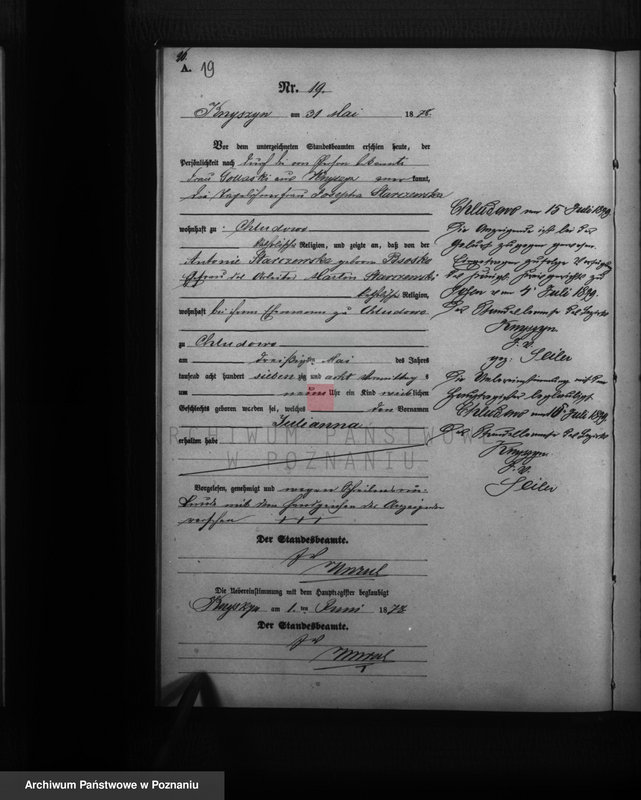 A. 19
Nr. 19.
Knyszyn am 31 Mai 1878
Vor dem unterzeichneten Standesbeamten erschien heute, der
Persönlichkeit nach
aus kannt,
die Tagelöhnerfrau Josepha Starczewska
wohnhaft zu Chludowo
katholischer Religion, und zeigte an, daß von der
Antonie Starczewska geborne
Ehefrau des Martin Starczewski
katholischer Religion,
wohnhaft bei ihrem Ehemann zu Chludowo
zu Chludowo
am dreißigsten Mai des Jahres
tausend acht hundert siebenzig und acht Vormittag s
um neun Uhr ein Kind weiblichen
Geschlechts geboren worden sei, welches den Vornamen
Julianna
erhalten habe
ARCHIWUM PAŃSTWOWE
W POZNANIU
Vorgelesen, genehmigt und wegen
mit dem Handzeichen der Anzeigenden
versehen + + +
Der Standesbeamte.
J V
Die Uebereinstimmung mit dem Hauptregister beglaubigt
am 1. ten Juni 1878
Der Standesbeamte.
J V
Chludowo am 15 Juli 1879.
Die Anzeigende ist bei der
Geburt zugegen gewesen.
Eingetragen zufolge Verfügung
des Königl. Kreisgerichts zu
Posen vom 4 Juli 1879.
Der Standesbeamte des Bezirks
Knyszyn
J. V.
gez: Seiler
Die Uebereinstimmung mit dem
Hauptregister beglaubigt.
Chludowo am 15 Juli 1879.
Der Standesbeamte des Bezirks
Knyszyn
J. V.
Seiler
Archiwum Państwowe w Poznaniu